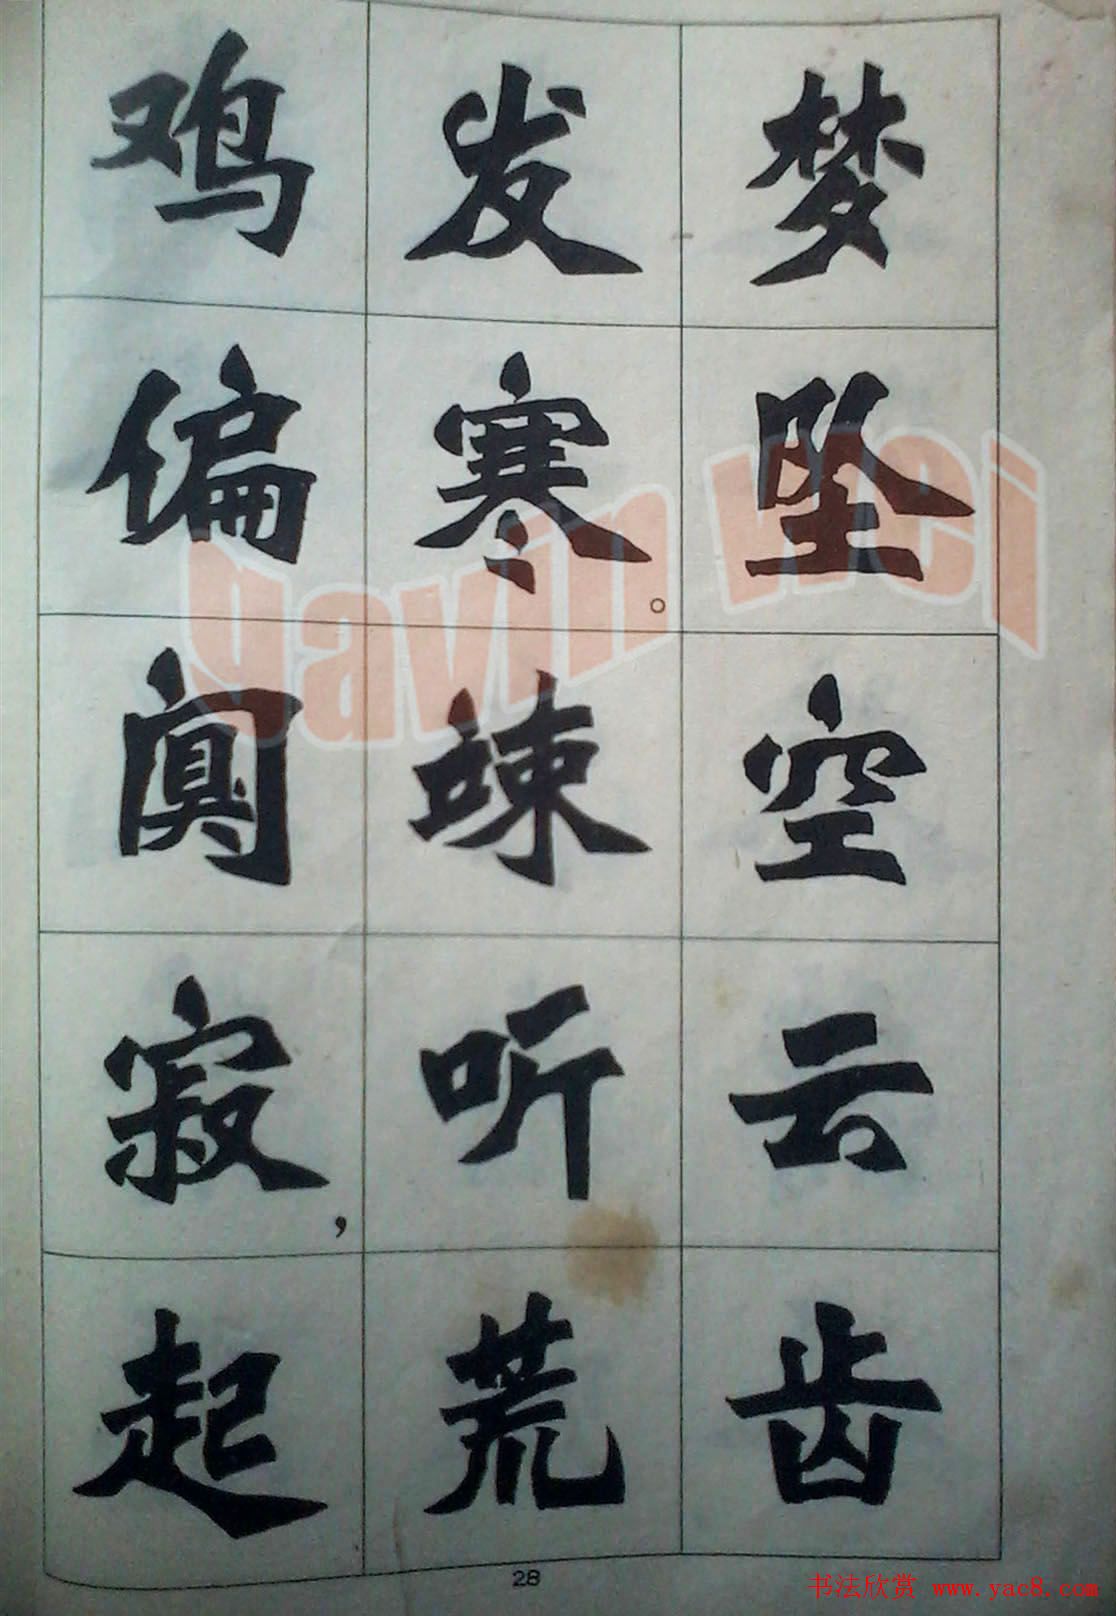 梦坠空云齿
发寒。竦听荒
鸡偏阒寂，起
28
gavin wei
书法欣赏 www.yac8.com